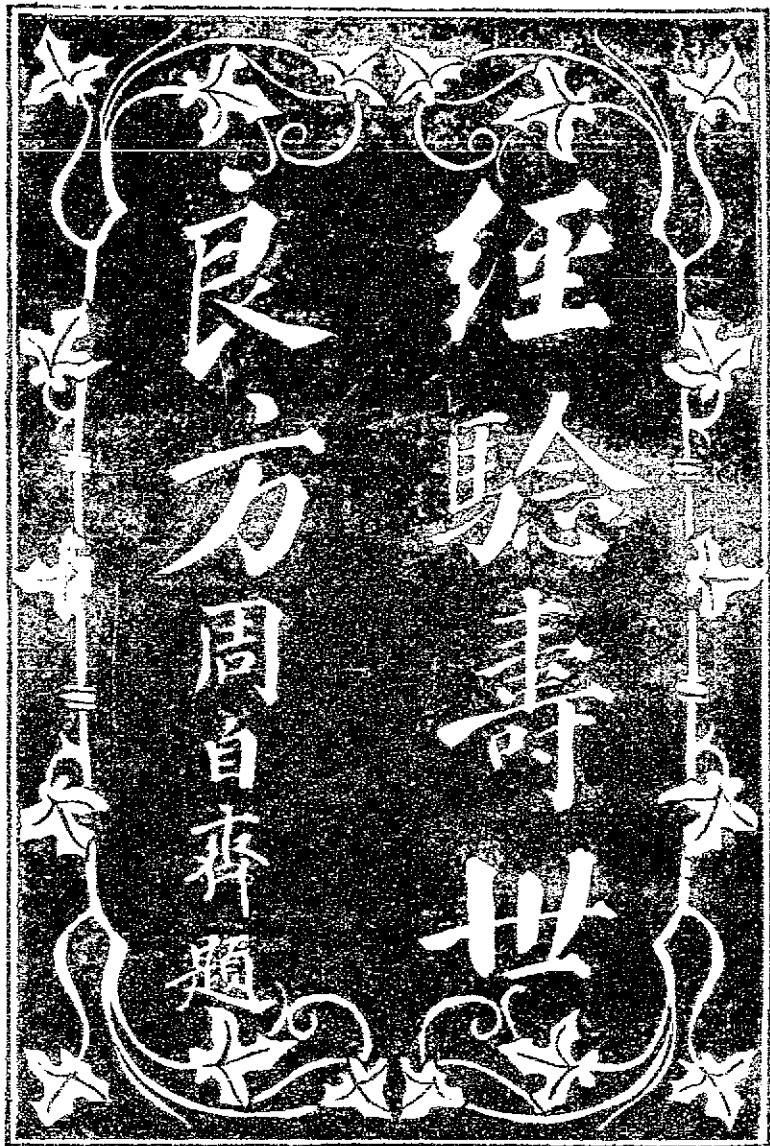 經驗壽世
良方周自齊題